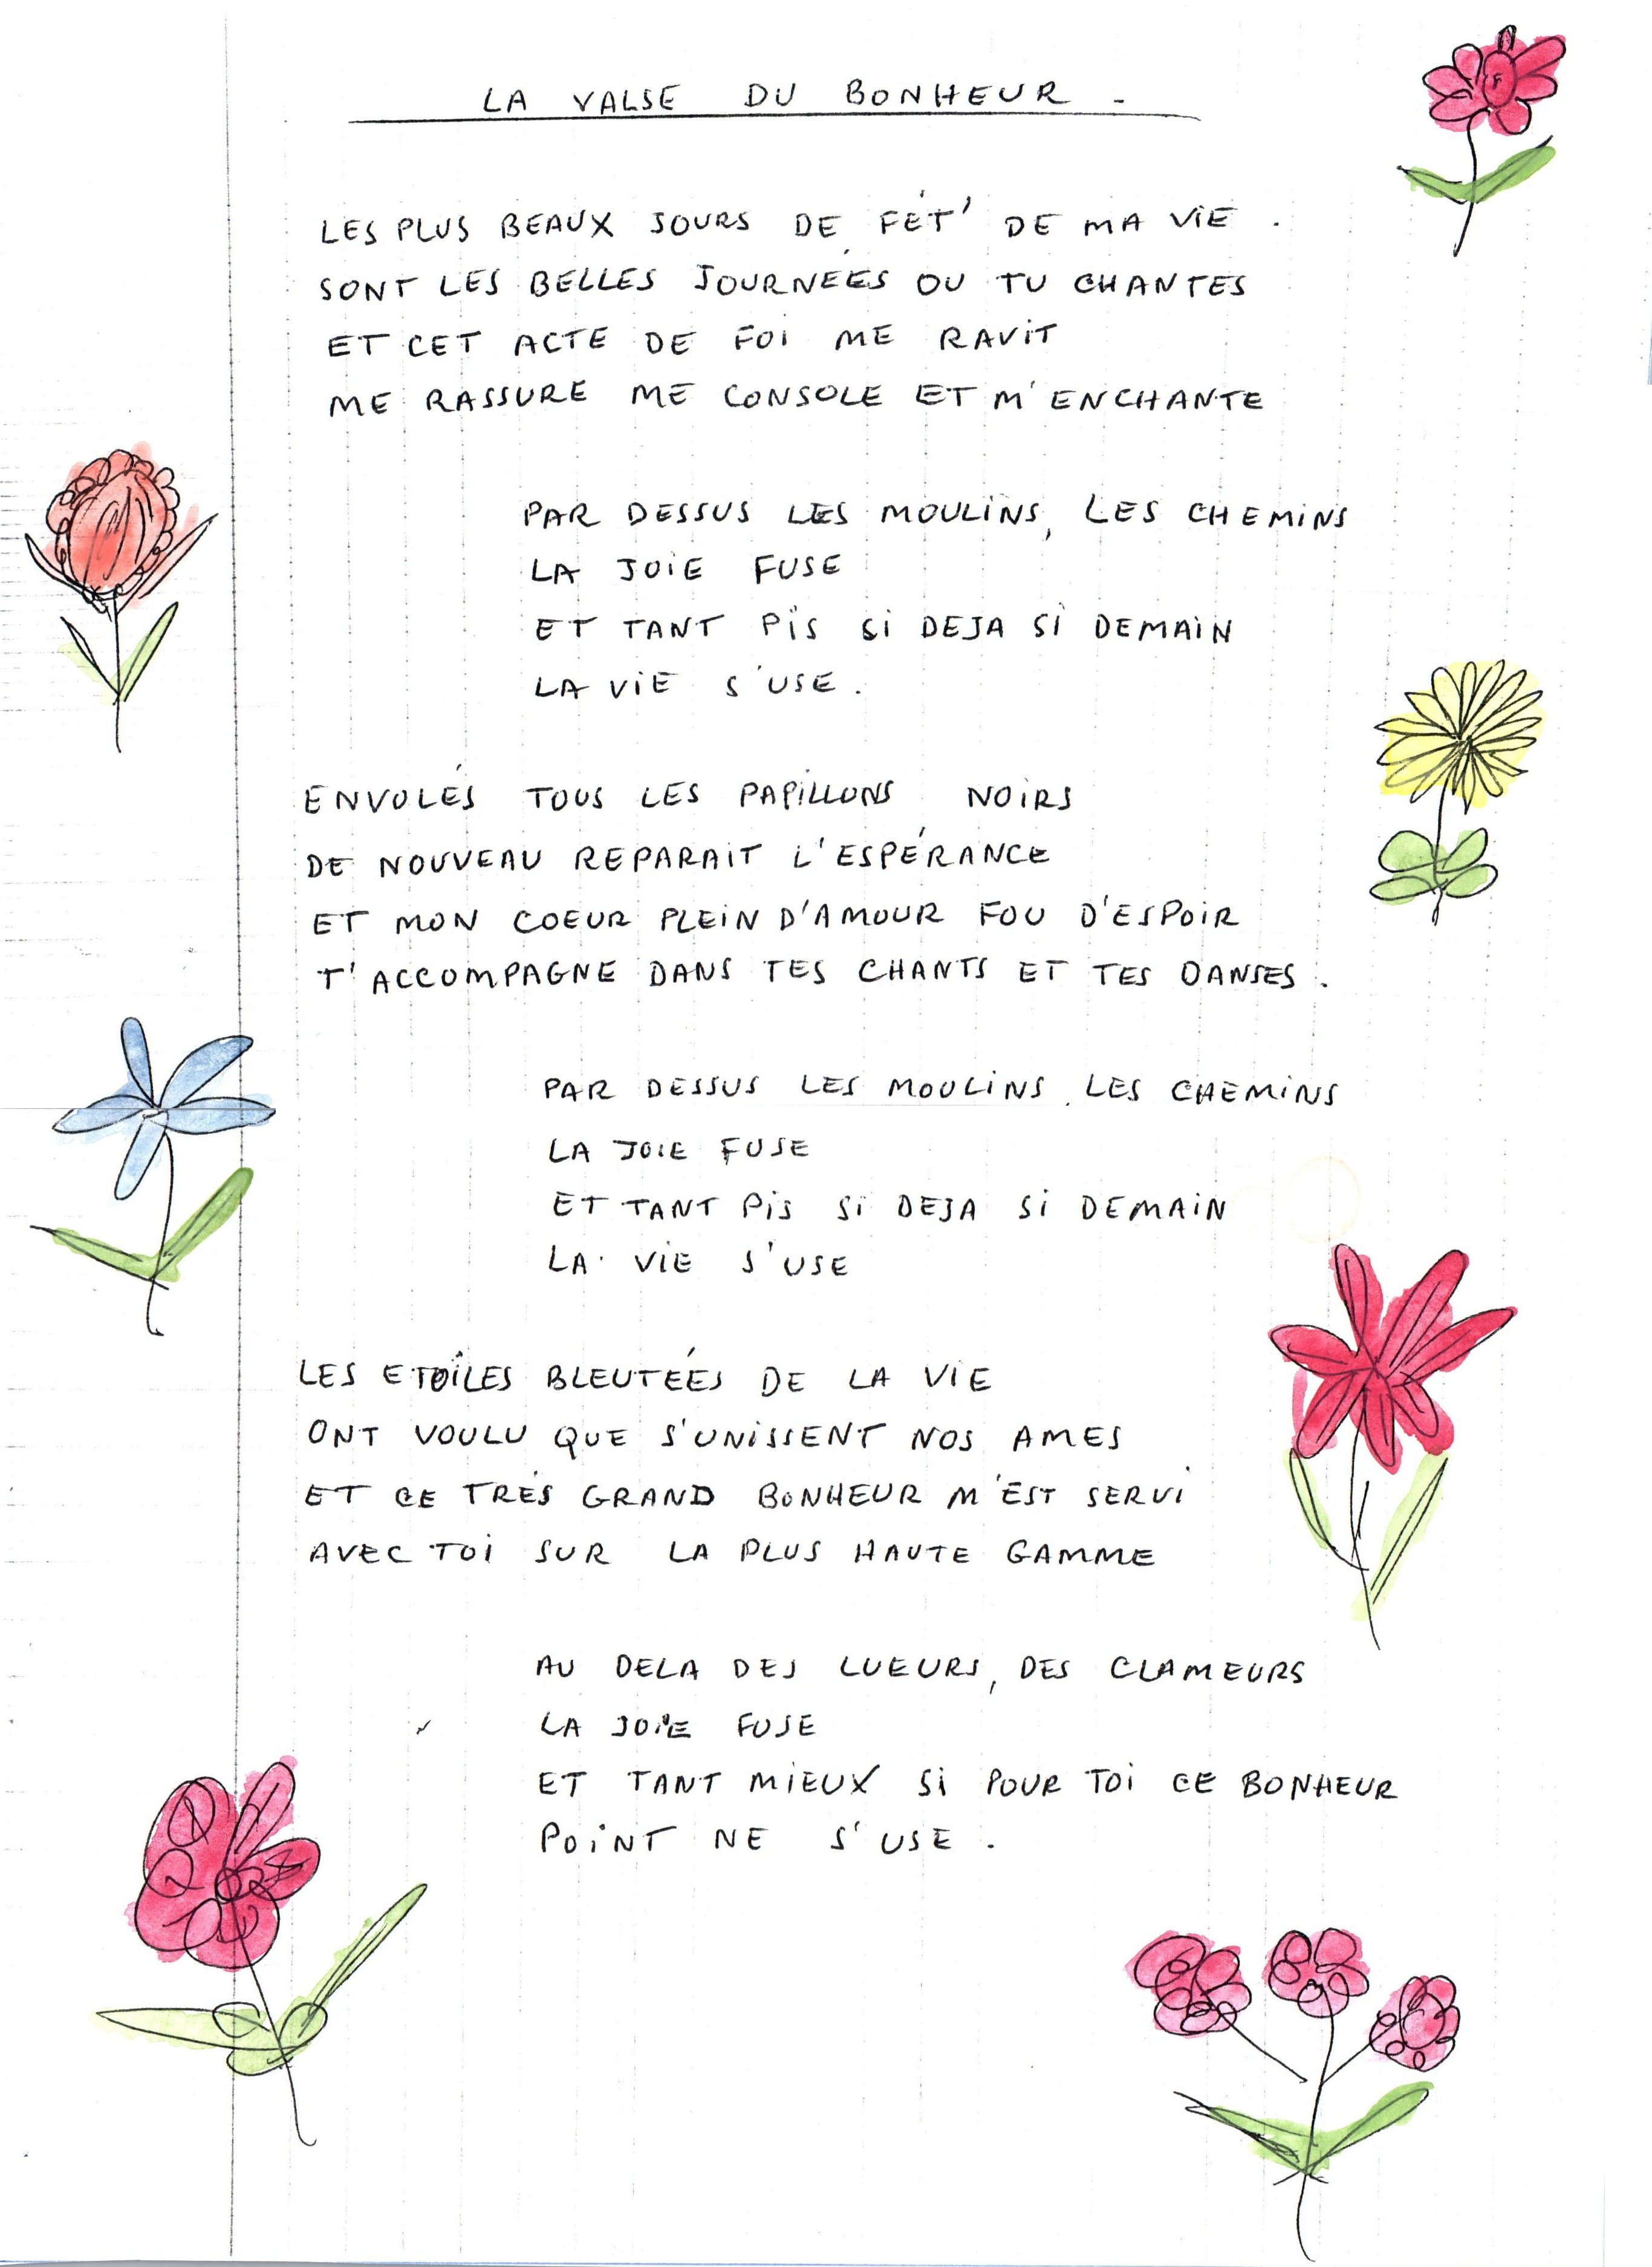 LA VALSE DU BONHEUR -
LES PLUS BEAUX JOURS DE FÉT' DE MA VIE .
SONT LES BELLES JOURNÉES OU TU CHANTES
ET CET ACTE DE FOI ME RAVIT
ME RASSURE ME CONSOLE ET M'ENCHANTE
PAR DESSUS LES MOULINS, LES CHEMINS
LA JOIE FUSE
ET TANT PIS SI DEJA SI DEMAIN
LA VIE S'USE .
ENVOLÉS TOUS LES PAPILLONS NOIRS
DE NOUVEAU REPARAIT L'ESPÉRANCE
ET MON COEUR PLEIN D'AMOUR FOU D'ESPOIR
T'ACCOMPAGNE DANS TES CHANTS ET TES DANSES .
PAR DESSUS LES MOULINS , LES CHEMINS
LA JOIE FUSE
ET TANT PIS SI DEJA SI DEMAIN
LA VIE S'USE
LES ETOILES BLEUTÉES DE LA VIE
ONT VOULU QUE S'UNISSENT NOS AMES
ET CE TRÉS GRAND BONHEUR M'EST SERVI
AVEC TOI SUR LA PLUS HAUTE GAMME
AU DELA DES LUEURS, DES CLAMEURS
LA JOIE FUSE
ET TANT MIEUX SI POUR TOI CE BONHEUR
POINT NE S'USE .